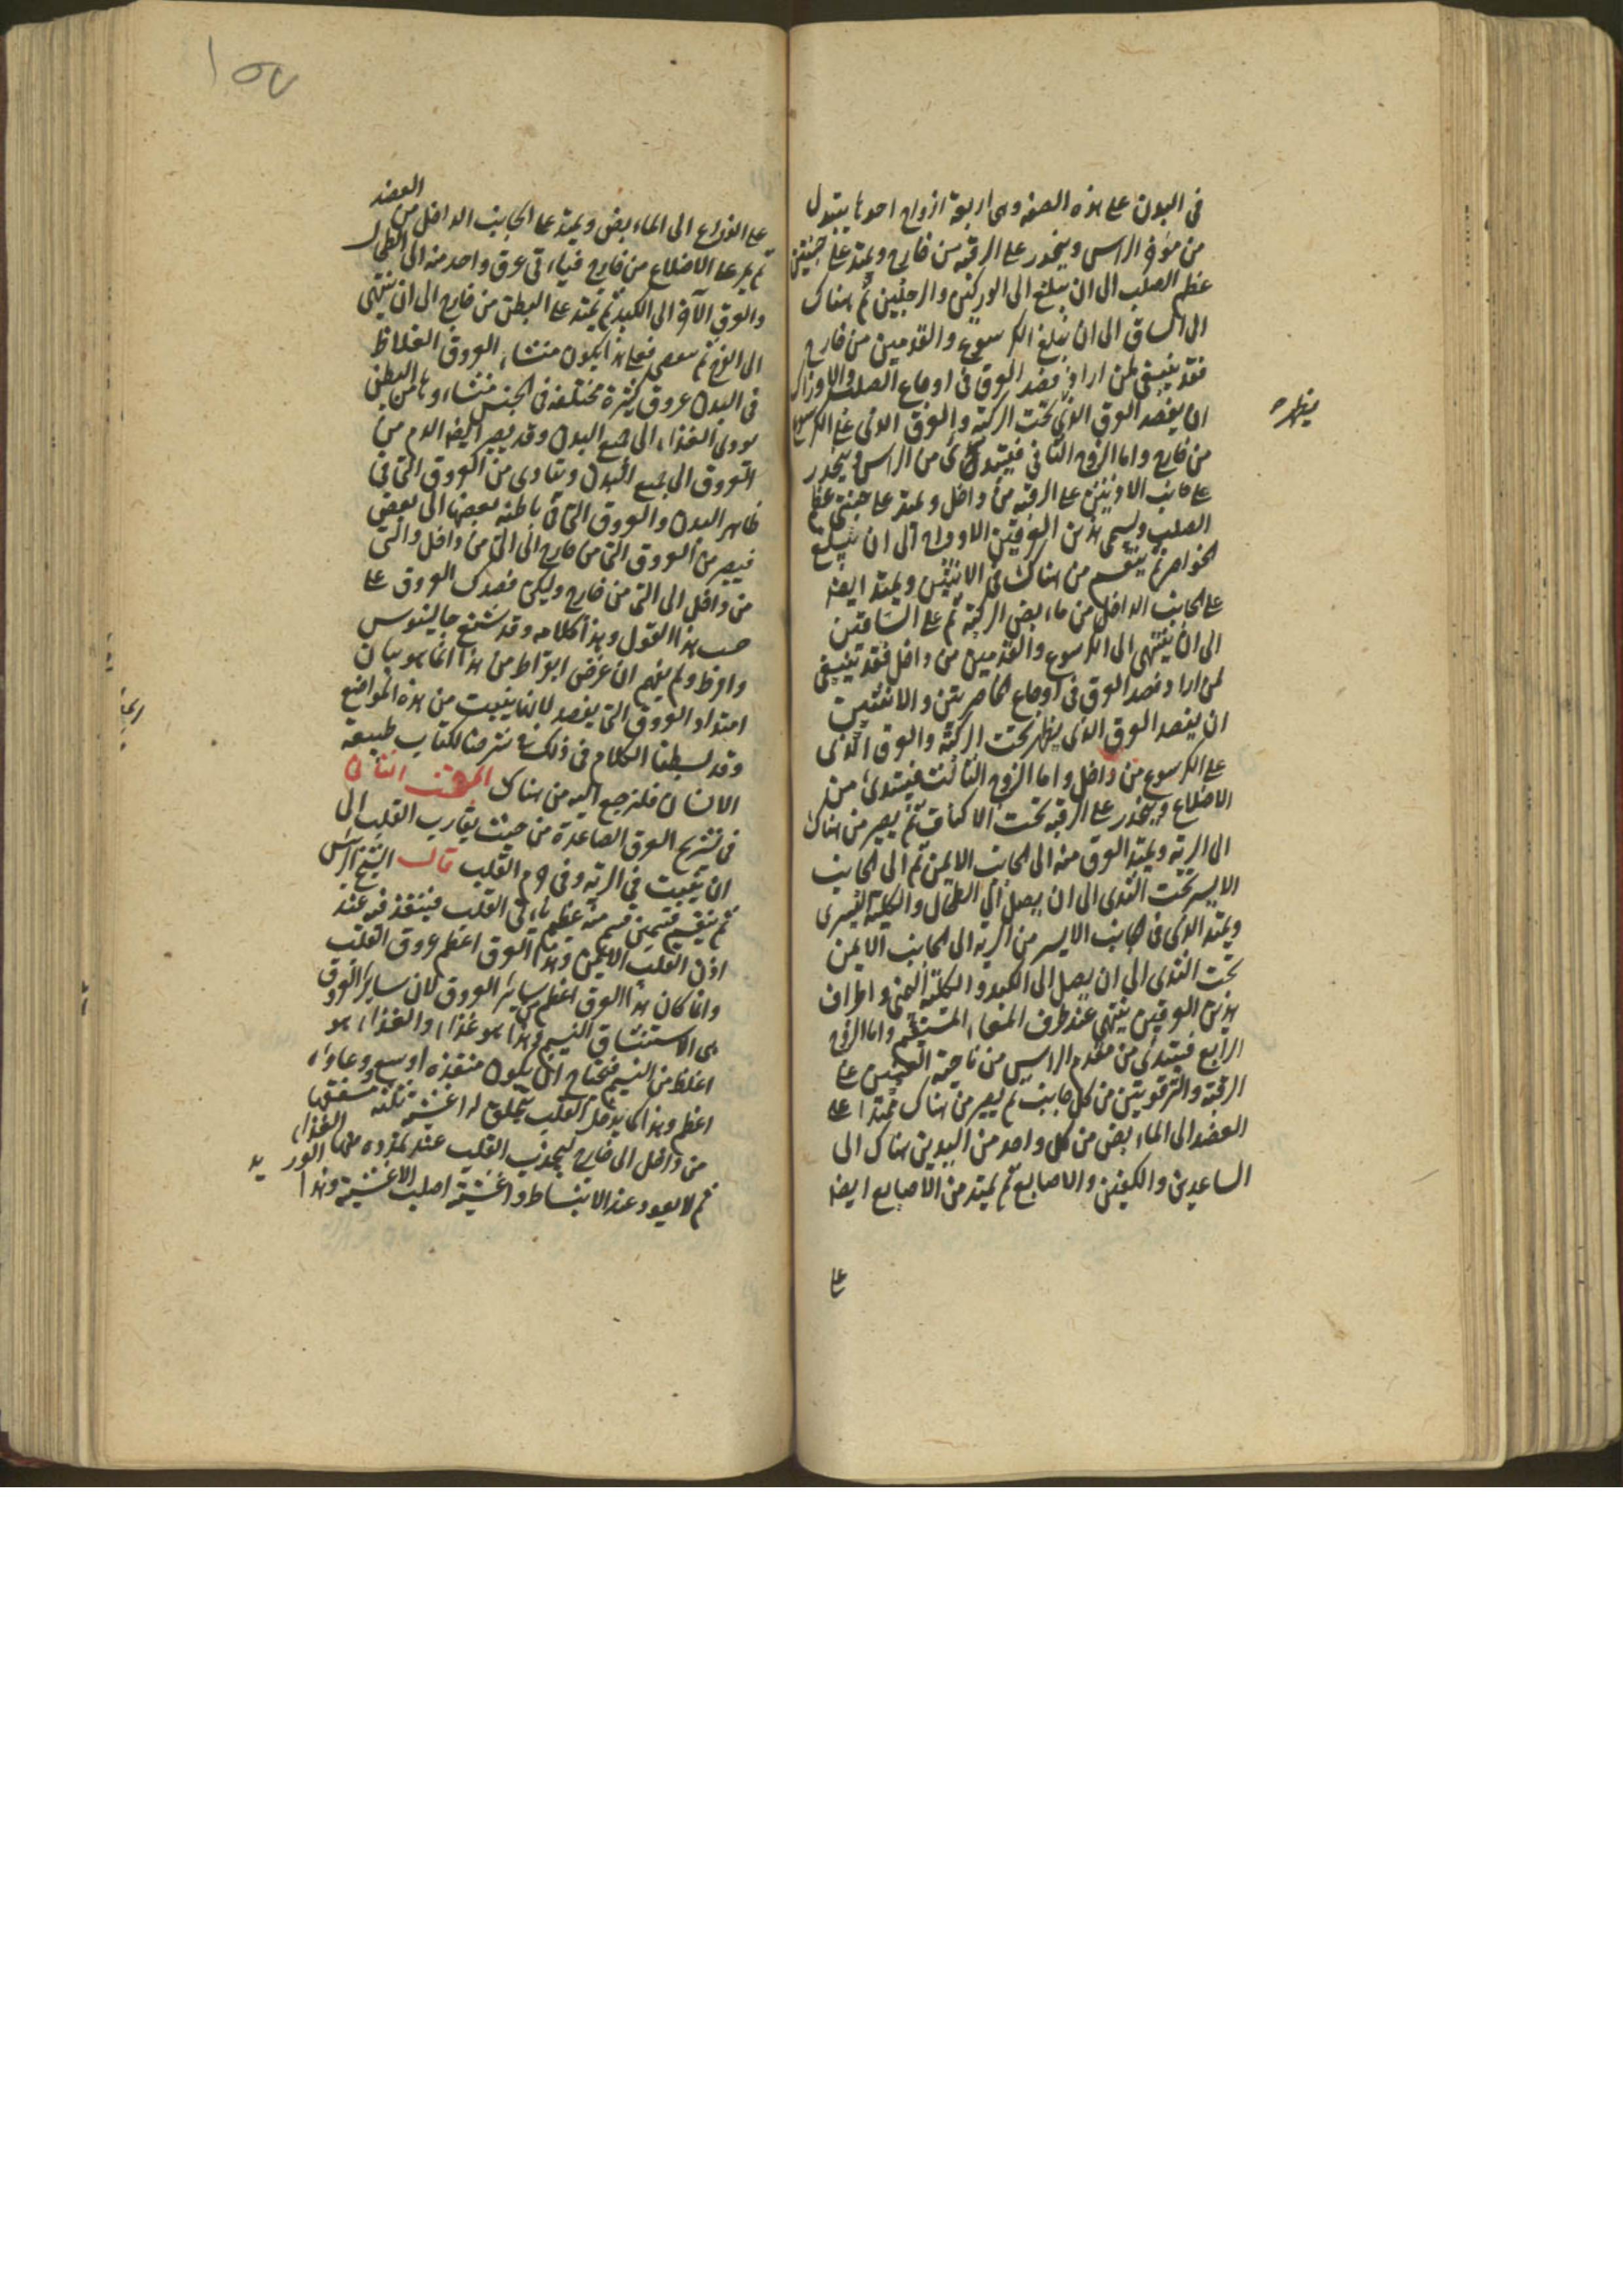 في البدن على هذه الصفه وهى اربعة ازواج احدها يبتدى
من مؤخر الراس وينحدر على الرقبة من خارج ويمتد على جنبتى
عظم الصلب الى ان يبلغ الى الوركين والرجلين ثم هناك
الى الساق الى ان يبلغ الكرسوع والقدمين من خارج
فقد ينبغى لمن اراد فصد العروق فى اوجاع الصلب والاوراك
ان يفصد العروق الذى تحت الركبة والعروق الذى على الكرسوع
من خارج واما الزوج الثانى فيبتدى من الراس وينحدر
على جانب الاذنين على الرقبة من داخل ويمتد على جنبتى عظم
الصلب ويسمى هذين العرقين الاوداج الى ان يبلغ
الخواصر ثم ينقسم من هناك فى الانثيين ويمتد ايضا
على الجانب الداخل من مابض الركبة ثم على الساقين
الى ان ينتهى الى الكرسوع والقدمين من داخل فقد ينبغى
لمن اراد فصد العروق فى اوجاع الخاصرتين والانثيين
ان يفصد العروق الذى يظهر تحت الركبة والعرق الذى
على الكرسوع من داخل واما الزوج الثالث فيبتدى من
الاضلاع وينحدر على الرقبة تحت الاكتاف ثم يصير من هناك
الى الرية ويمتد العرق منه الى الجانب الايمن ثم الى الجانب
الايسر تحت الثدى الى ان يصل الى الطحال والكلية اليسرى
ويمتد الذى فى الجانب الايسر من الرية الى الجانب الايمن
تحت الثدى الى ان يصل الى الكبد والكلية اليمنى واطراف
هذين العرقين ينتهى عند طرف المعاء المستقيم واما الزوج
الرابع فيبتدى من مقدم الراس من ناحية العينين على
الرقبة والترقوتين من كل جانب ثم يصير من هناك ممتدا على
العضد الى المابض من كل واحد من اليدين هناك الى
الساعدين والكفين والاصابع ثم يمتد من الاصابع ايضا
على
يظهر
١٥٧
على الذراع الى المابض ويمتد على الجانب الداخل من العضد
ثم يمر على الاضلاع من خارج فياتى عرق واحد منه الى الطحال
والعرق الآخر الى الكبد ثم يمتد على البطن من خارج الى ان ينتهى
الى الفرج ثم فعلى هذا يكون منشاء العروق الغلاظ
فى البدن عروق كثيرة مختلفة فى الجنس منشاوها من البطن
يودى الغذاء الى جميع البدن وقد يصير ايضا الدم من
العروق الى جميع البدن ويتادى من العروق التى فى
ظاهر البدن والعروق التى فى باطنه بعضها الى بعض
فيصير من العروق التى من خارج الى التى من داخل والتى
من داخل الى التى من خارج وليكن فصدك العروق على
حسب هذا القول وهذا كلامه وقد شنع جالينوس
وافرط ولم يفهم ان غرض ابقراط من هذا انما هو بيان
امتداد العروق التى يفصد لا انها ينبت من هذه المواضع
وقد بسطنا الكلام فى ذلك فى شرحنا لكتاب طبيعة
الانسان فلترجع اليه من هناك المبحث الثانى
فى تشريح العرق الصاعدة من حيث يقارب القلب الى
ان يتثبت فى الرية وفى جرم القلب قال الشيخ الرئيس
ثم ينقسم قسمين قسم منه عظيم ياتى القلب فينفذ فيه عند
اذن القلب الايمن وهذا العرق اعظم عروق القلب
وانما كان هذا العرق اعظم من ساير العروق لان ساير العروق
هى لاستنشاق النسيم وهذا هو غذاء والغذاء هو
اغلظ من النسيم فيحتاج ان يكون منفذه اوسع ووعاوه
اعظم وهذا كما يدخل القلب يتخلق له اغشية ثلثة مسقفها
من داخل الى خارج ليجذب القلب عند تمدده منها الغذاء
ثم لا يعود عند الانبساط واغشيته اصلب الاغشية وهذا الوريد